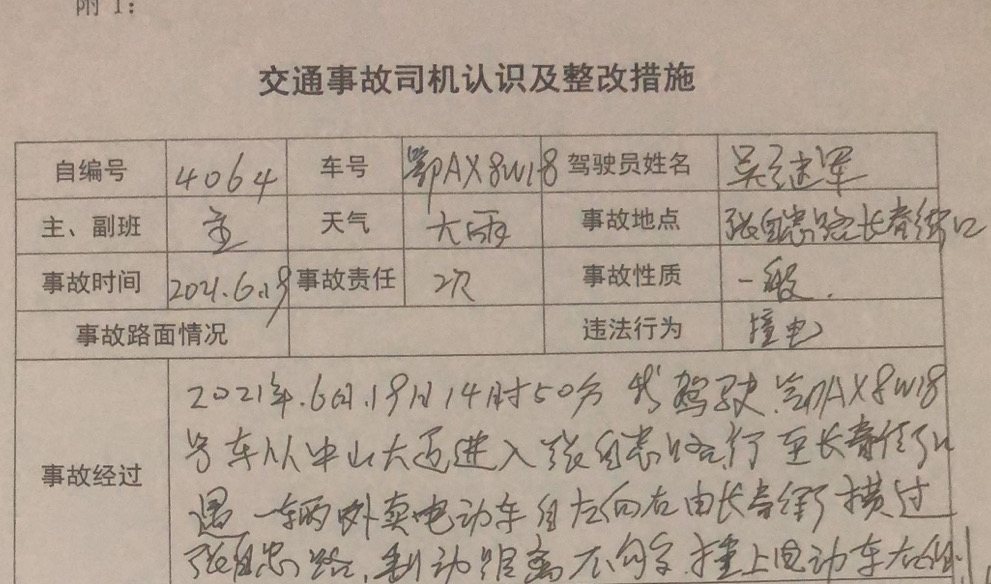 附1：
交通事故司机认识及整改措施
自编号 4064 车号 鄂AX8W18 驾驶员姓名 吴建军
主、副班 主 天气 大雨 事故地点 张自忠路长春街口
事故时间 2021.6.19 事故责任 次 事故性质 一般.
事故路面情况 违法行为 撞电
2021年.6日.19日14时50分 我驾驶.鄂AX8W18
号车从中山大道进入张自忠路,行至长春街口
事故经过
遇一辆外卖电动车自左向右由长春街横过
张自忠路,制动距离不够 撞上电动车左侧